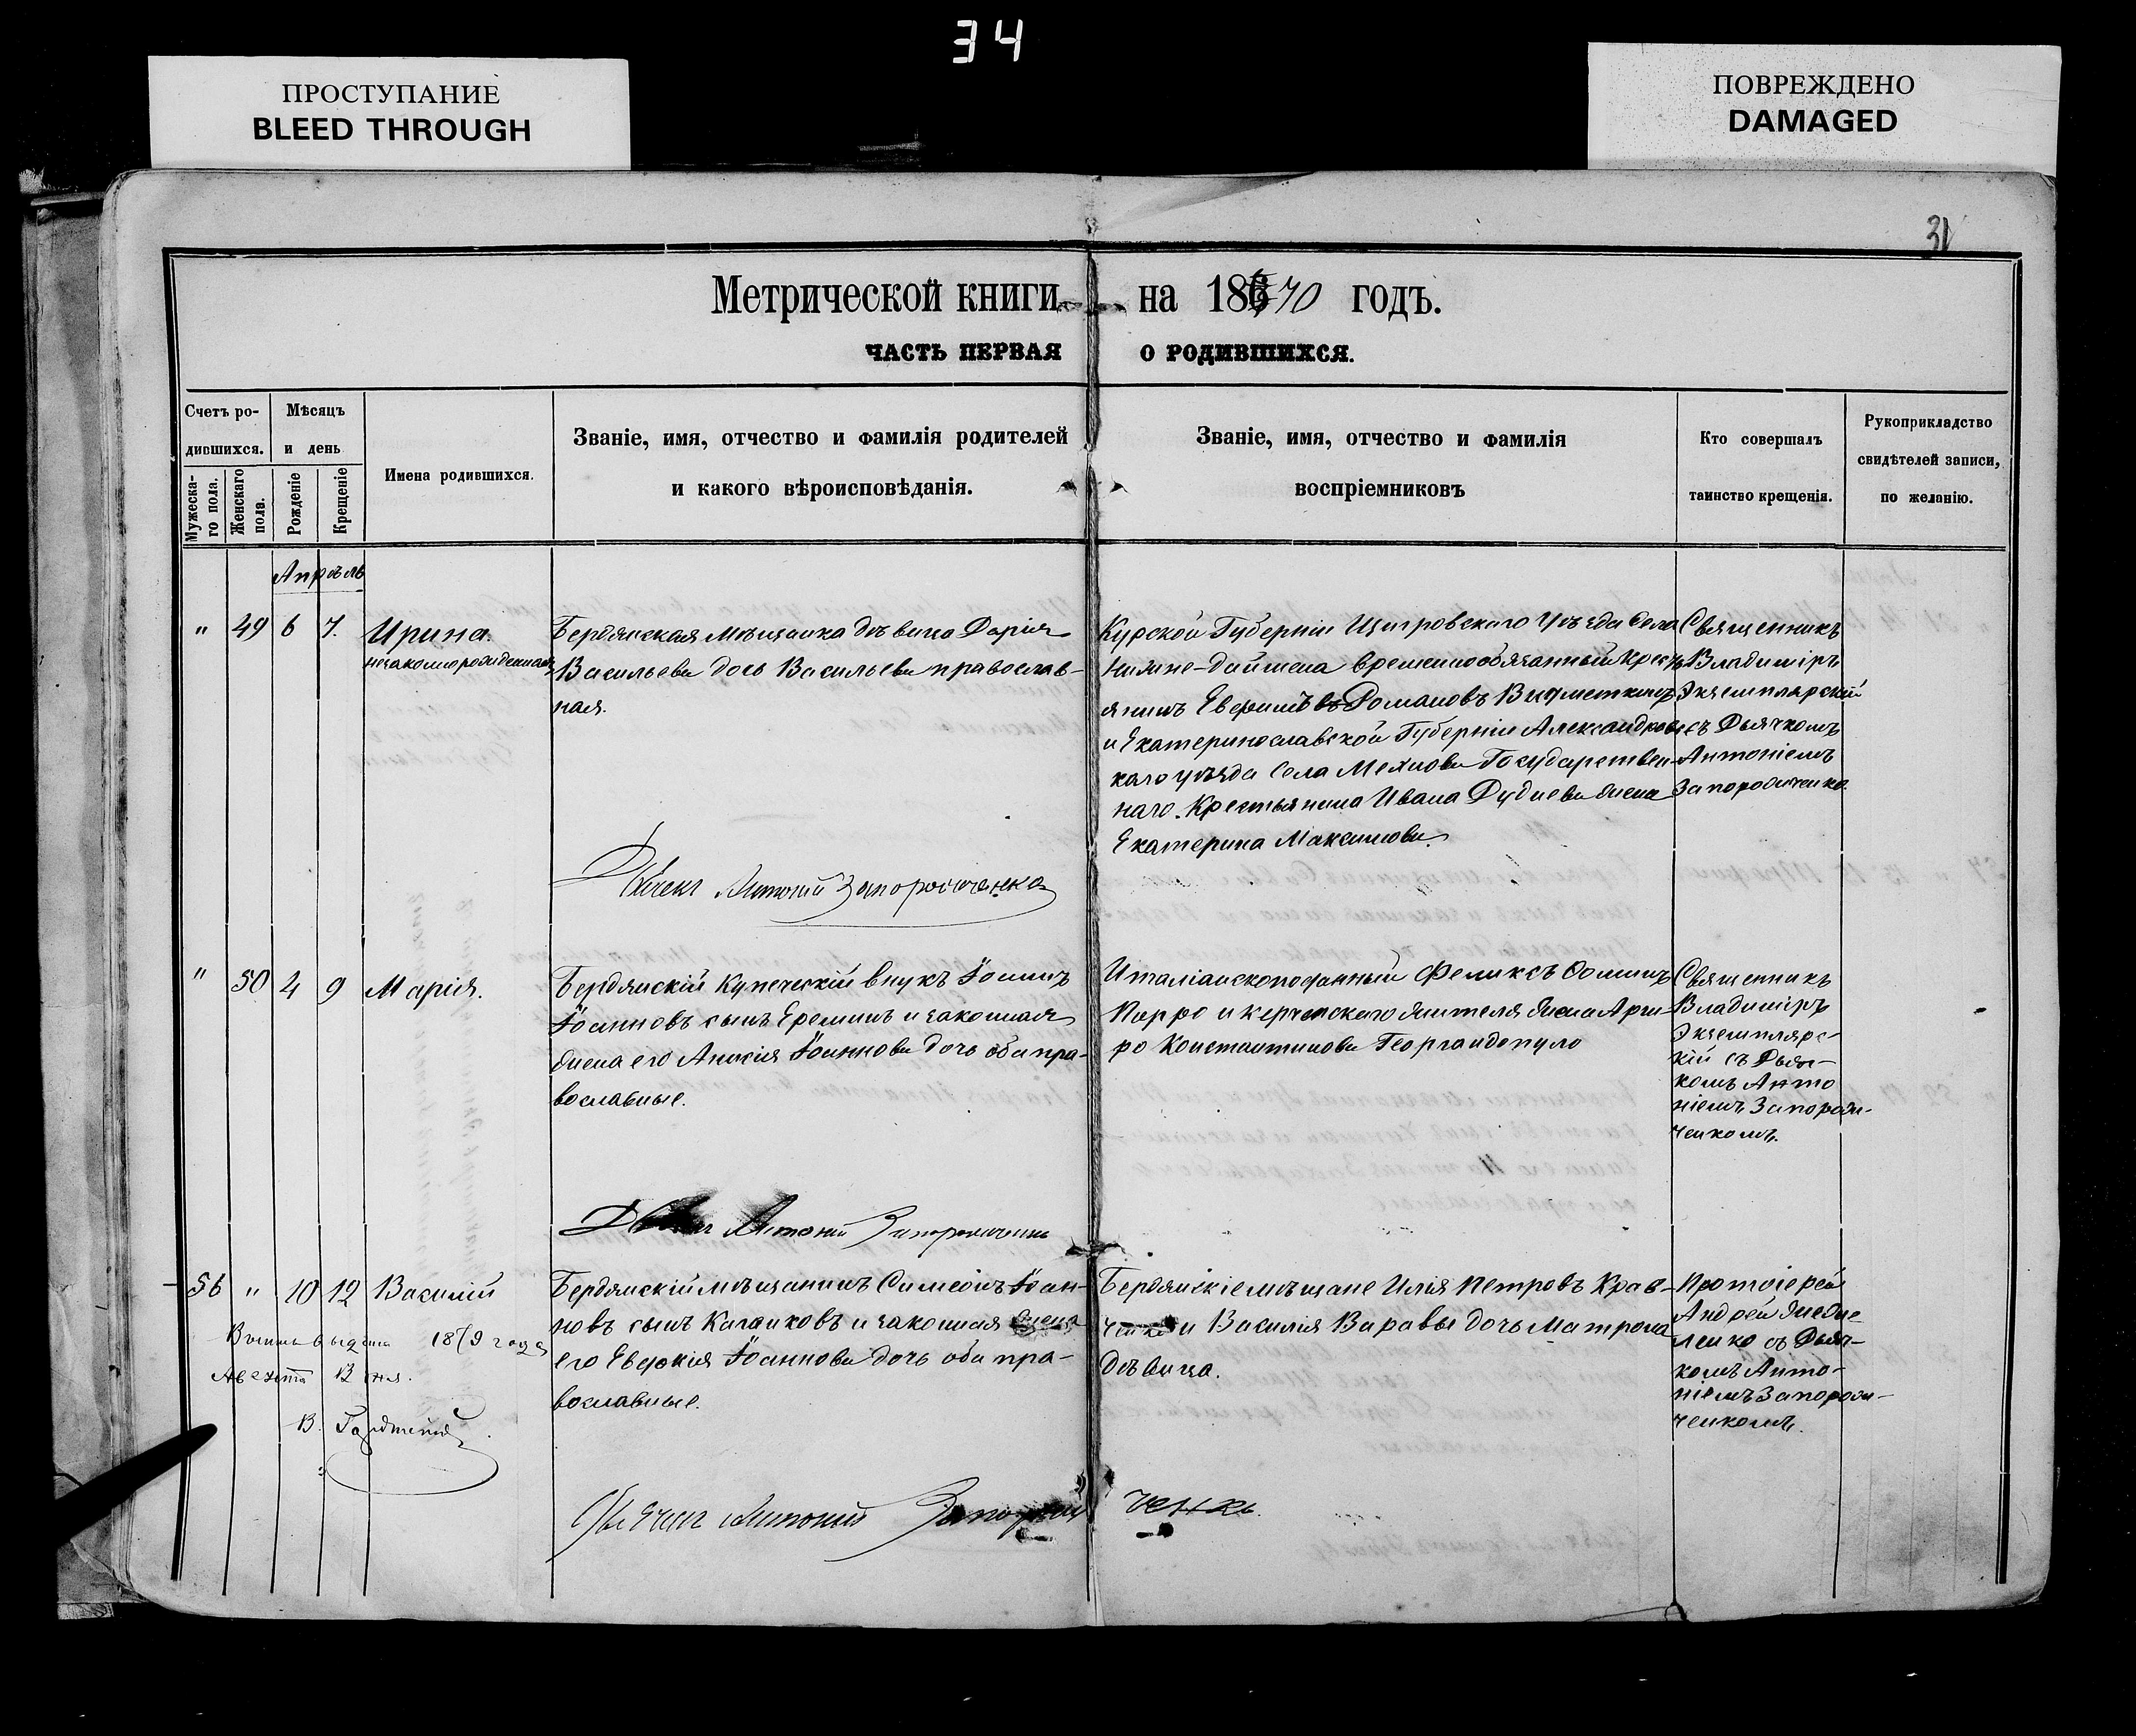 34
ПРОСТУПАНИЕ
BLEED THROUGH
ПОВРЕЖДЕНО
DAMAGED
31
Метрической книги на 1870 годъ.
ЧАСТЬ ПЕРВАЯ О РОДИВШИХСЯ.
Счетъ ро-
дившихся.
Мужеска-
го пола.
Женскаго
пола.
Мѣсяцъ
и день
Рожденіе
Крещеніе
Имена родившихся.
Званіе, имя, отчество и фамилія родителей
и какого вѣроисповѣданія.
Званіе, имя, отчество и фамилія
воспріемниковъ
Кто совершалъ
таинство крещенія.
Рукоприкладство
свидѣтелей записи,
по желанію.
Апрѣль
" 49 6 7. Ирина.
незаконнорожденная
Бердянская мѣщанка дѣвица Дарія
Васильева дочь Васильева православ-
ная.
Курской Губерніи Щигровскаго Уѣзда Села
Нижне-Даймена временнообязанный кресть
янинъ Романовъ
и Екатеринославской Губерніи Александровс
каго уѣзда Села Государствен-
наго Крестьянина Ивана жена
Екатерина Максимова.
Священникъ
Владиміръ
Экземплярскій
съ Дьячкомъ
Антоніемъ
Запорожченко.
Дьячекъ Антоній Запорожченко
" 50 4 9 Марія.
Бердянскій Купеческій внукъ Іоаннъ
Іоанновъ сынъ Ереминъ и законная
жена его Іоаннова дочь оба пра-
вославные.
Италіанскоподанный Феликсъ
Порро и керченскаго жителя жена Арги-
ро Константинова Георгандопуло
Священникъ
Владиміръ
Экземплярс-
кій съ Дьяч-
комъ Анто
ніемъ Запорож-
ченкомъ.
Антоній Запорожченко
56 " 10 12 Василій
Бердянскій мѣщанинъ Симеонъ Іоан-
новъ сынъ Калайковъ и законная жена
его Евдокія Іоаннова дочь оба пра-
вославные.
Бердянскіе мѣщане Илія Петровъ Крав-
ченко и Василія Варавы дочь Матрона
дѣвица.
Протоіерей
Андрей
ленко съ Дьяч-
комъ Анто-
ніемъ Запорож-
ченкомъ.
выдана 1879 года
Августа дня.
В.
Дьячекъ Антоній Запорож ченко.